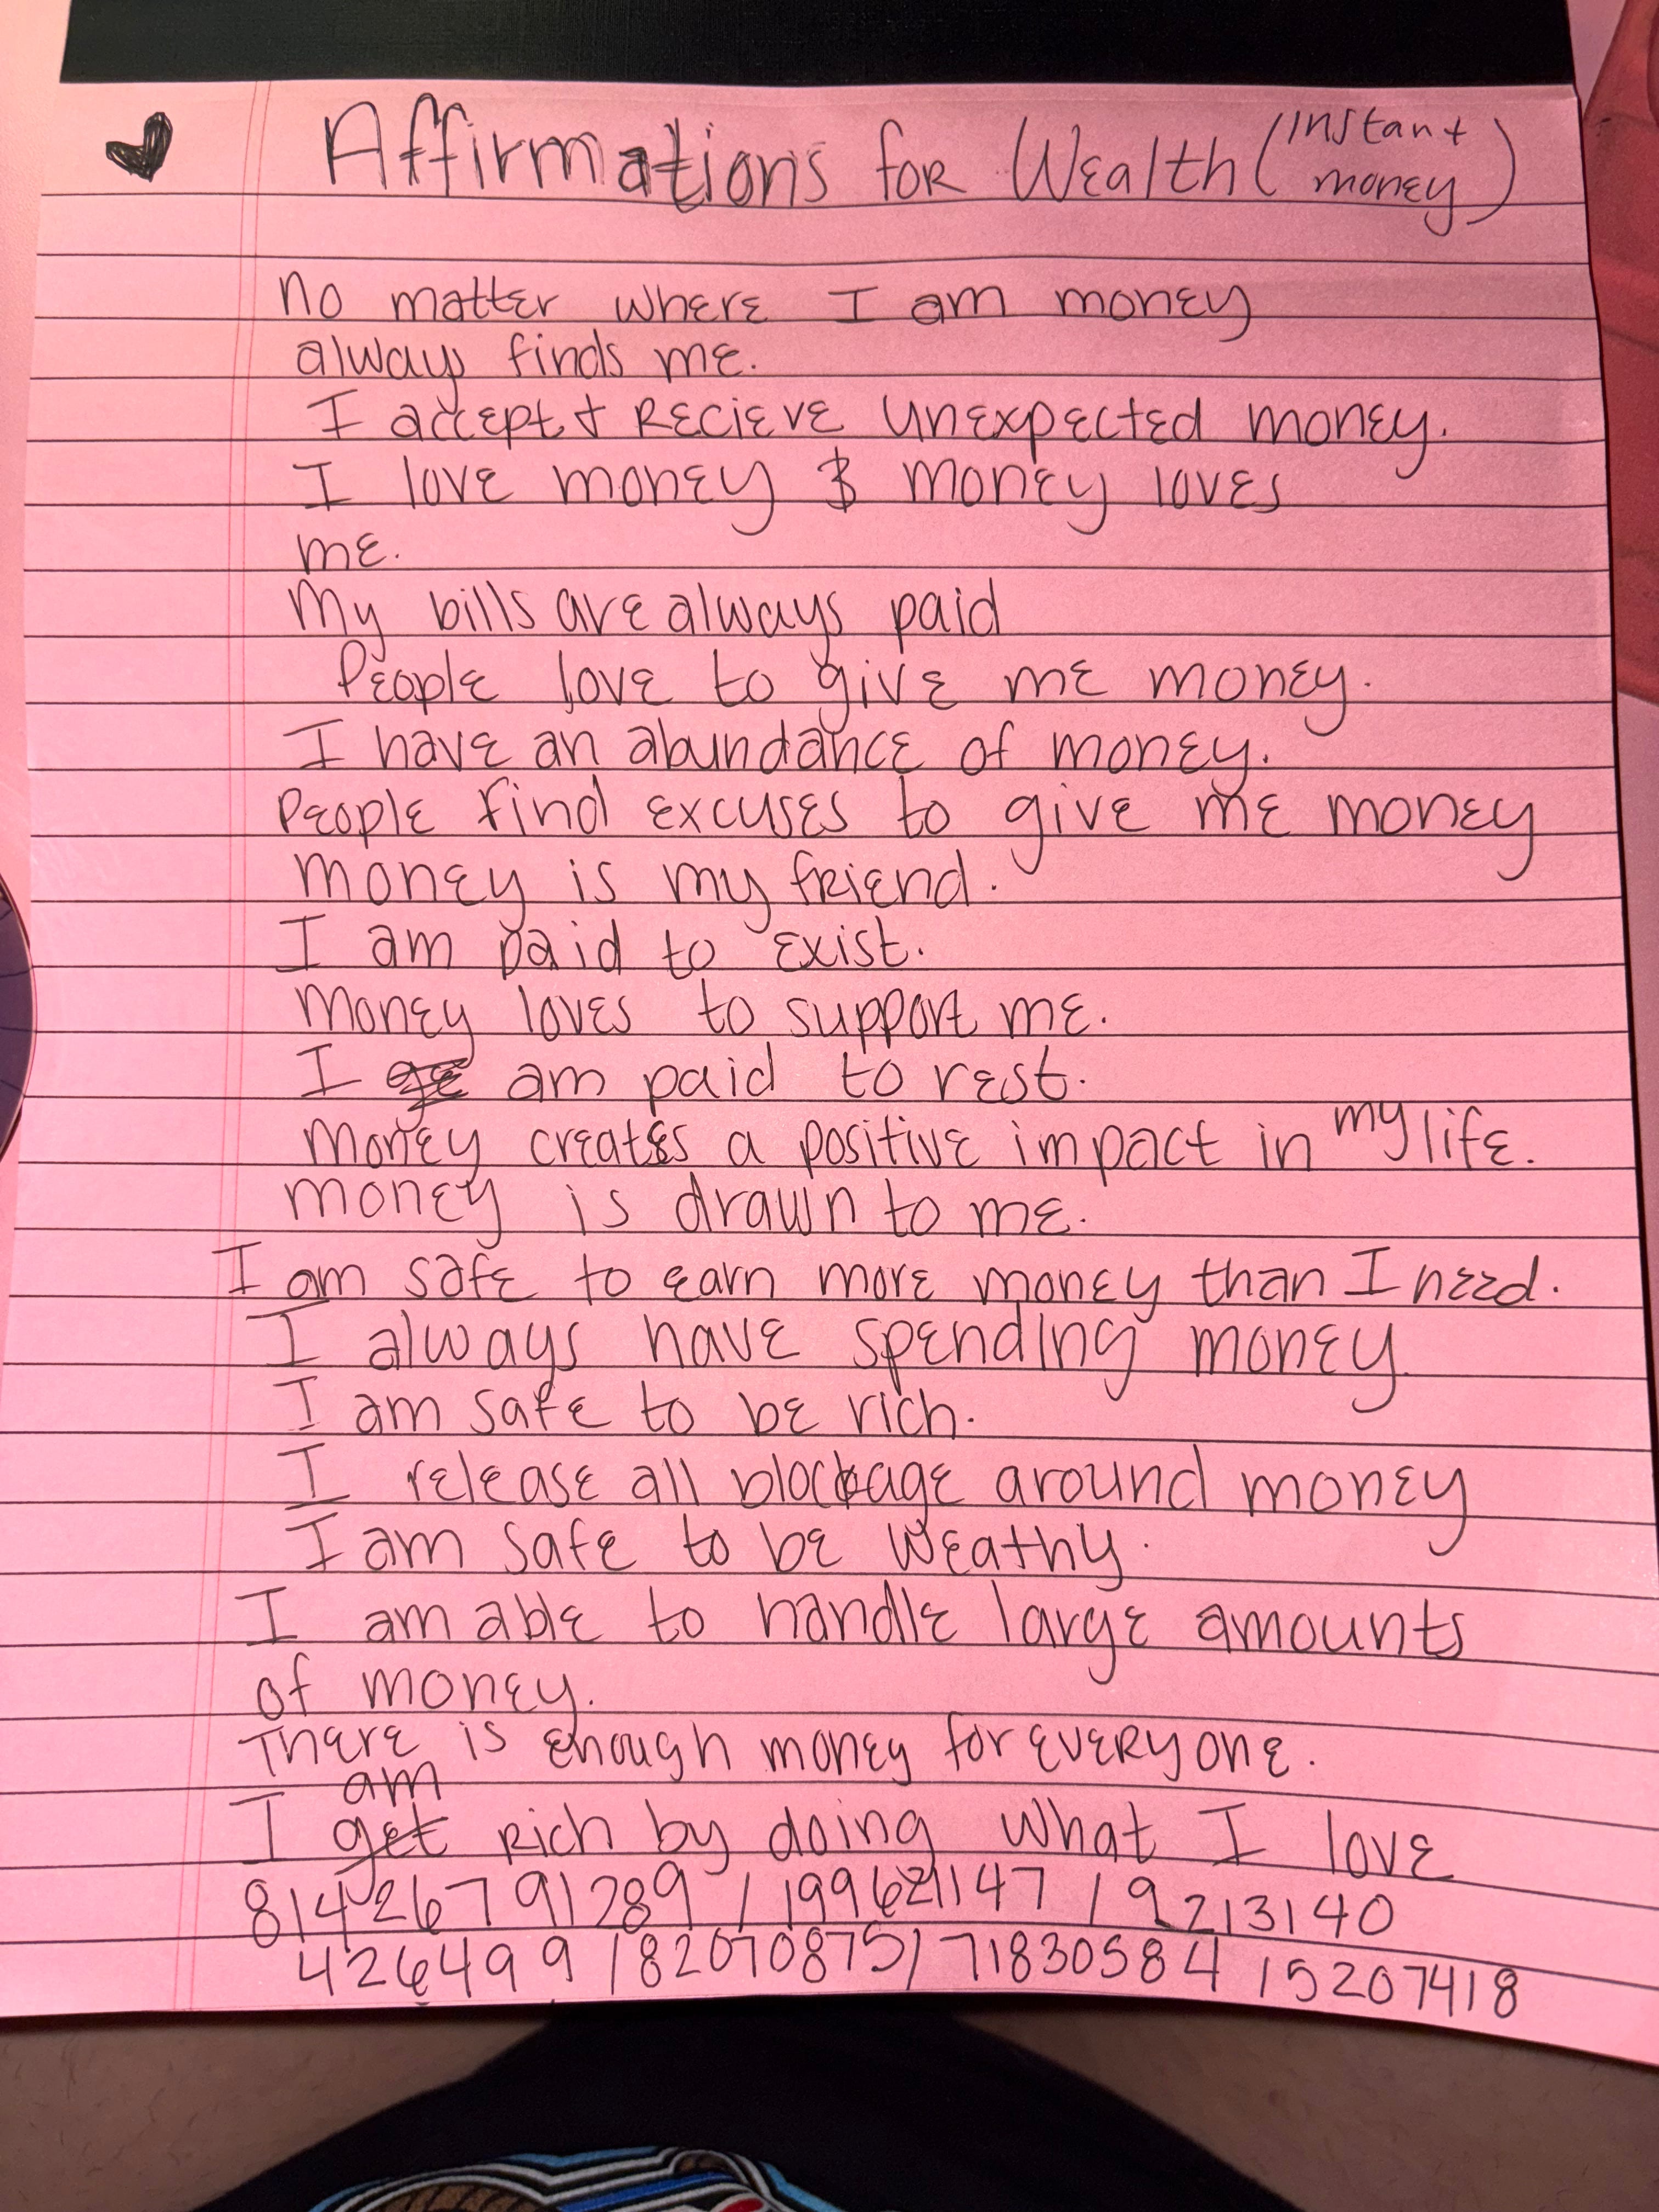 Affirmations for Wealth (instant money)
no matter where I am money
always finds me.
I accept + Recieve unexpected money.
I love money $ money loves
me.
My bills are always paid
People love to give me money.
I have an abundance of money.
People find excuses to give me money
money is my friend.
I am paid to exist.
Money loves to support me.
I am paid to rest.
Money creates a positive impact in my life.
money is drawn to me.
I am safe to earn more money than I need.
I always have spending money
I am safe to be rich.
I release all blockage around money
I am safe to be Weathy.
I am able to handle large amounts
of money.
There is enough money for everyone.
I am rich by doing what I love
81426791289 / 199621147 / 9213140
426499 / 82070875 / 71830584 15207418